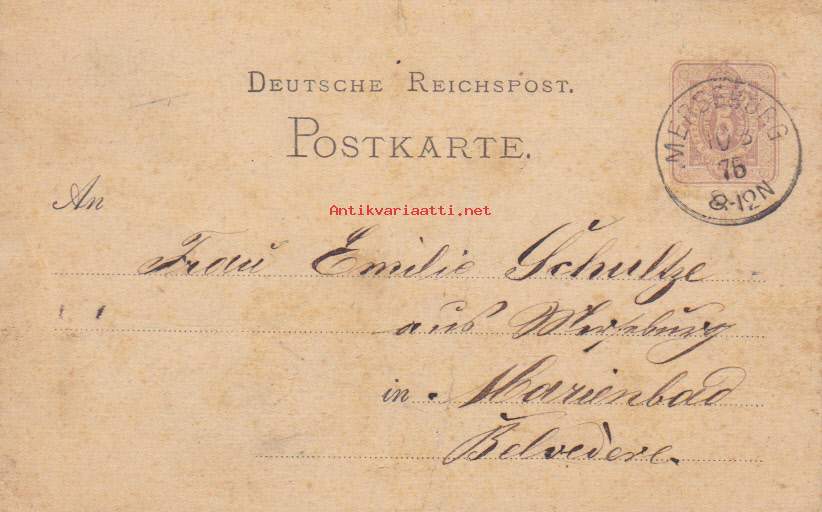 DEUTSCHE REICHSPOST.
POSTKARTE.
5
MERSEBURG
10 8
76
8-12N
An
Antikvariaatti.net
Frau Emilie Schultze
aus Merseburg
in Marienbad
Belvedere.